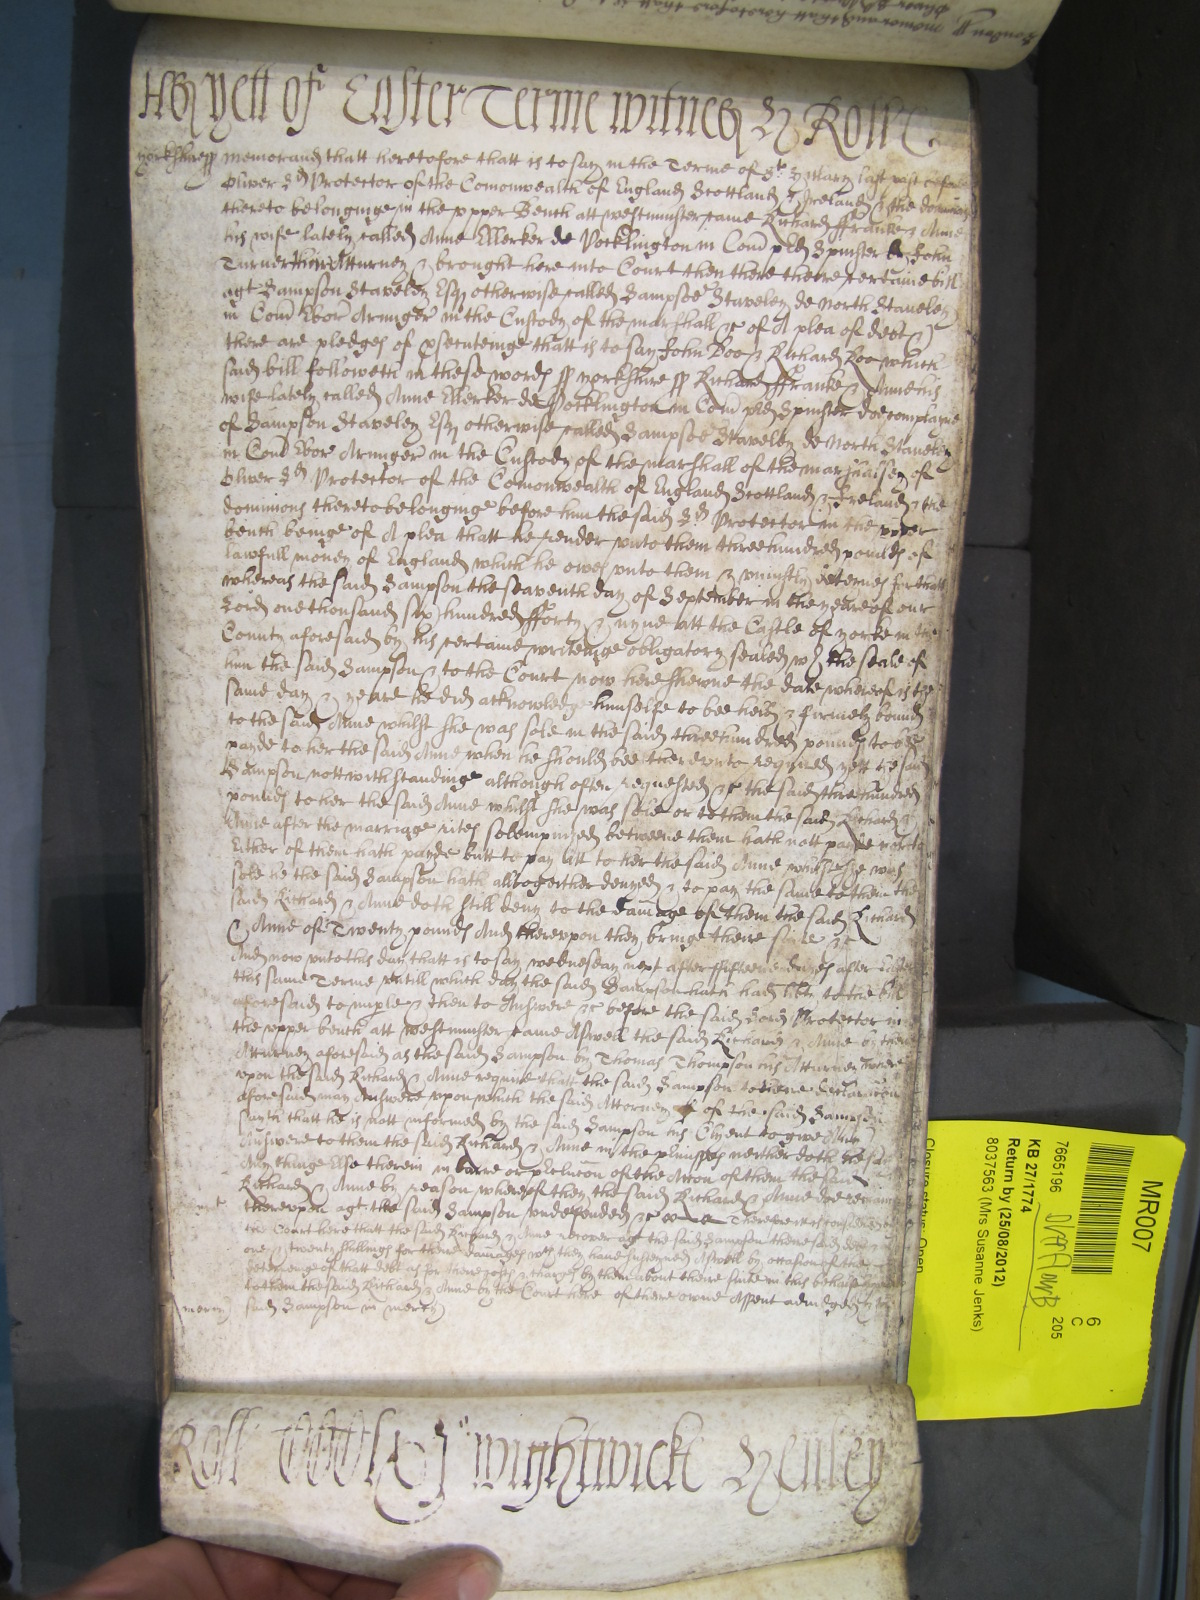 As yett of Easter Terme witnes H Rolle.
Yorkshire ss memorand thatt heretofore thatt is to say in the Terme of St Hillary last past before
Oliver Ld Protector of the Comonwealth of England Scottland & Ireland & the dominions
thereto belonginge in the upper Bench att westminster came Richard ffranke & Anne
his wife lately called Anne Ellerker de Pocklington in Com pred Spinster by John
Turner their Atturney & brought here into Court then there theire certaine bill
agt Sampson Staveley Esqr otherwise called Sampsoe Staveley de North Staveley
in Com Ebor Armiger in the Custody of the marshall &c of A plea of debt &
there are pledges of psecuteinge thatt is to say John Doo & Richard Roo which
said bill followeth in these words ss yorkshire ss Richard ffranke & Anne his
wife lately called Anne Ellerker de Pocklington in Com pred Spinster doe complayne
of Sampson Staveley Esqr otherwise called Sampsoe Staveley de North Staveley
in Com Ebor Armiger in the Custody of the marshall of the marshalsey of
Oliver Ld Protector of the Comonwealth of England Scottland & Ireland & the
dominions thereto belonginge before him the said Ld Protector in the upper
bench beinge of A plea thatt he render unto them three hundred pounds of
lawfull money of England which he owes unto them & uniustly deteines for thatt
whereas the said Sampson the seaventh day of September in the yeare of our
Lord one thousand six hundred fforty & nyne att the Castle of yorke in the
County aforesaid by his certaine writeinge obligatory sealed wth the seale of
him the said Sampson & to the Court now here shewne the date whereof is the
same day & yeare he did acknowledge himselfe to bee held & firmely bound
to the said Anne whilst she was sole in the said three hundred pounds to bee
payde to her the said Anne when he should bee thereunto required yett the said
Sampson nottwithstandinge although often requested &c the said three hundred
pounds to her the said Anne whilst she was sole or to them the said Richard &
Anne after the marriage rites solempnized betweene them hath nott payde nor to
Either of them hath payde butt to pay itt to her the said Anne whilst she was
sole he the said Sampson hath altogeither denyed & to pay the same to them the
said Richard & Anne doth still deny to the damage of them the said Richard
& Anne of Twenty pounds And thereupon they bringe theire suite &c
And now unto this day that is to say wednesday next after ffifteene dayes after Easter
this same Terme untill which day the said Sampson hath had leave to the bill
aforesaid to imple & then to Answere &c before the said Lord Protector in
the upper bench att westminster came Aswell the said Richard & Anne by their
Atturney aforesaid as the said Sampson by Thomas Thompson his Atturney where
upon the said Richard & Anne require thatt the said Sampson to theire declaracon
aforesaid may Answere upon which the said Attorney of the said Sampson
saith thatt he is nott informed by the said Sampson his Clyent to give Any
Answere to them the said Richard & Anne in the premisses neither doth he say
Any thinge Else therein in barre or preclucon of the Accon of them the said
Richard & Anne by reason whereof they the said Richard & Anne doe remaine
thereupon agt the said Sampson undefended &c Therefore itt is considered by
the Court here thatt the said Richard & Anne recover agt the said Sampson theire said debt &
one & twenty shillings for theire damages wch they have susteyned Aswell by occasion of the
deteineinge of thatt debt as for theire costs & charges by them about theire suite in this behalfe
to them the said Richard & Anne by the Court here of theire owne Assent adiudged & the
mercy said Sampson in mercy
Roll Wightwicke Henley
MR007
6
C
205
7665196
KB 27/1774
Return by (25/08/2012)
8037563 (Mrs Susanne Jenks)
Closure status: Open